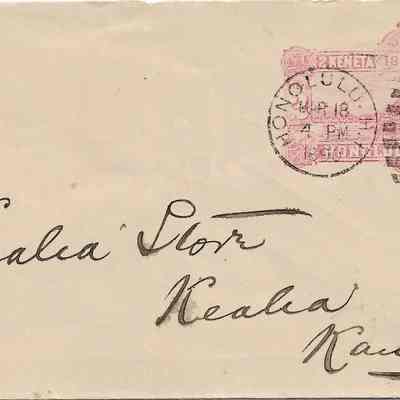 2 KENETA
HONOLULU H.I.
MAR 18
4 PM
ealea Store
Kealea
Kau